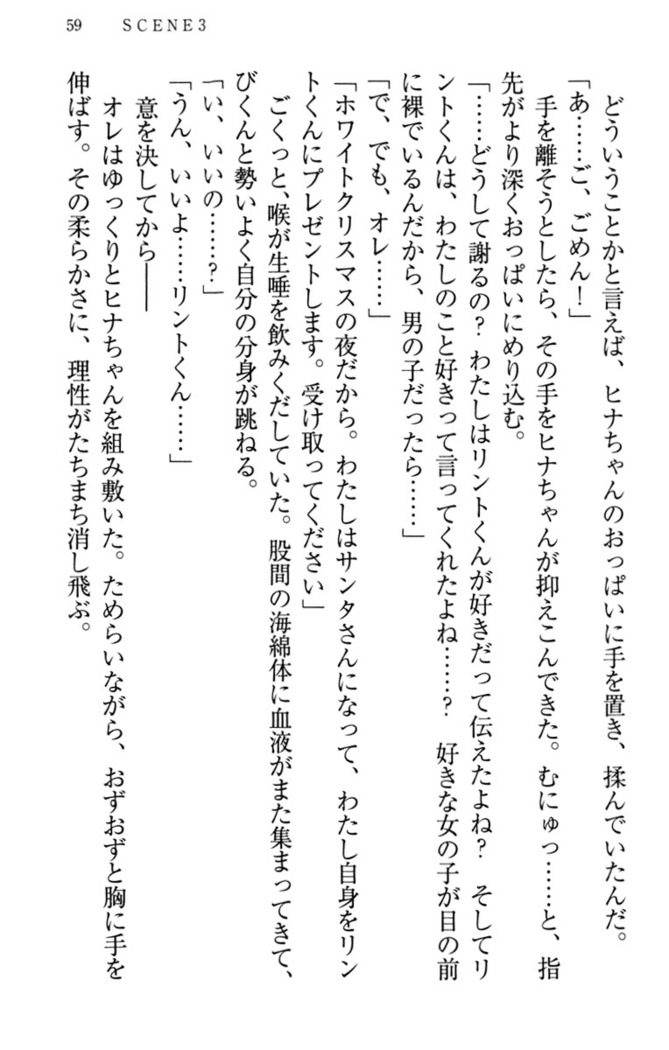 59　SCENE3
どういうことかと言えば、ヒナちゃんのおっぱいに手を置き、揉んでいたんだ。
「あ……ご、ごめん！」
手を離そうとしたら、その手をヒナちゃんが抑えこんできた。むにゅっ……と、指
先がより深くおっぱいにめり込む。
「……どうして謝るの？　わたしはリントくんが好きだって伝えたよね？　そしてリ
ントくんは、わたしのこと好きって言ってくれたよね……？　好きな女の子が目の前
に裸でいるんだから、男の子だったら……」
「で、でも、オレ……」
「ホワイトクリスマスの夜だから。わたしはサンタさんになって、わたし自身をリン
トくんにプレゼントします。受け取ってください」
ごくっと、喉が生唾を飲みくだしていた。股間の海綿体に血液がまた集まってきて、
びくんと勢いよく自分の分身が跳ねる。
「い、いいの……？」
「うん、いいよ……リントくん……」
意を決してから――
オレはゆっくりとヒナちゃんを組み敷いた。ためらいながら、おずおずと胸に手を
伸ばす。その柔らかさに、理性がたちまち消し飛ぶ。